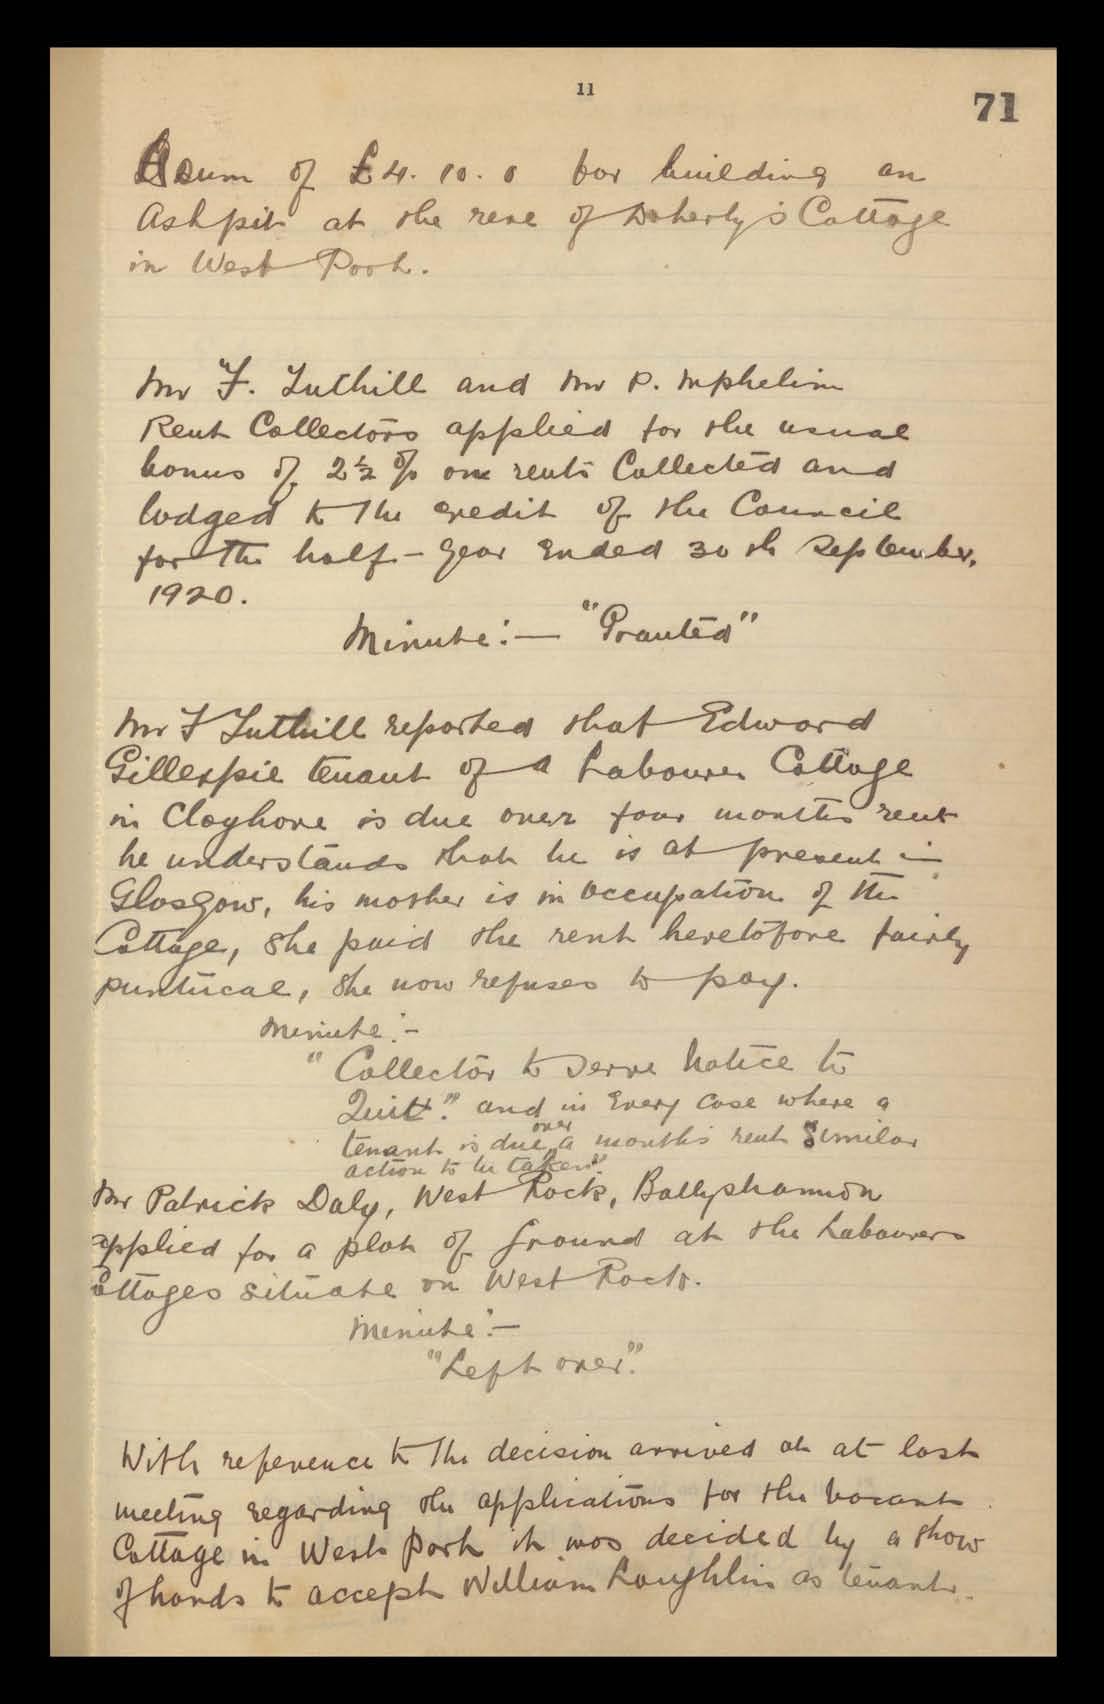 11
71
A sum of £4. 10. 0 for building an
Ashpit at the rere of Doherty's Cottage
in West Port.
Mr F. Tuthill and Mr P. McPhelim
Rent Collectors applied for the usual
bonus of 2½ % on rents Collected and
lodged to the credit of the Council
for the half-year ended 30th September,
1920.
Minute:— "Granted"
Mr F Tuthill reported that Edward
Gillespie tenant of a Labourer Cottage
in Cloghore is due over four months rent
he understands that he is at present in
Glasgow, his mother is in occupation of the
Cottage, she paid the rent heretofore fairly
puntucal, she now refuses to pay.
Minute:-
"Collector to serve Notice to
Quit." and in every case where a
over
tenant is due a months rent similar
action to be taken"
Mr Patrick Daly, West Rock, Ballyshannon
applied for a plot of ground at the Labourers
Cottages situate on West Rock.
Minute:—
"Left over".
With reference to the decision arrived at at last
meeting regarding the applications for the vacant
Cottage in West Port it was decided by a show
of hands to accept William Loughlin as tenant.